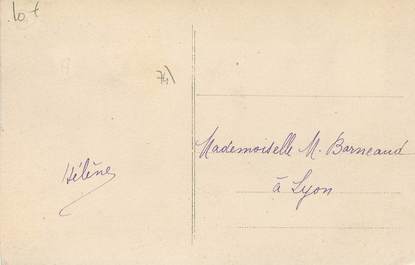 10 €
74
Hélène
Mademoiselle M. Barneaud
à Lyon